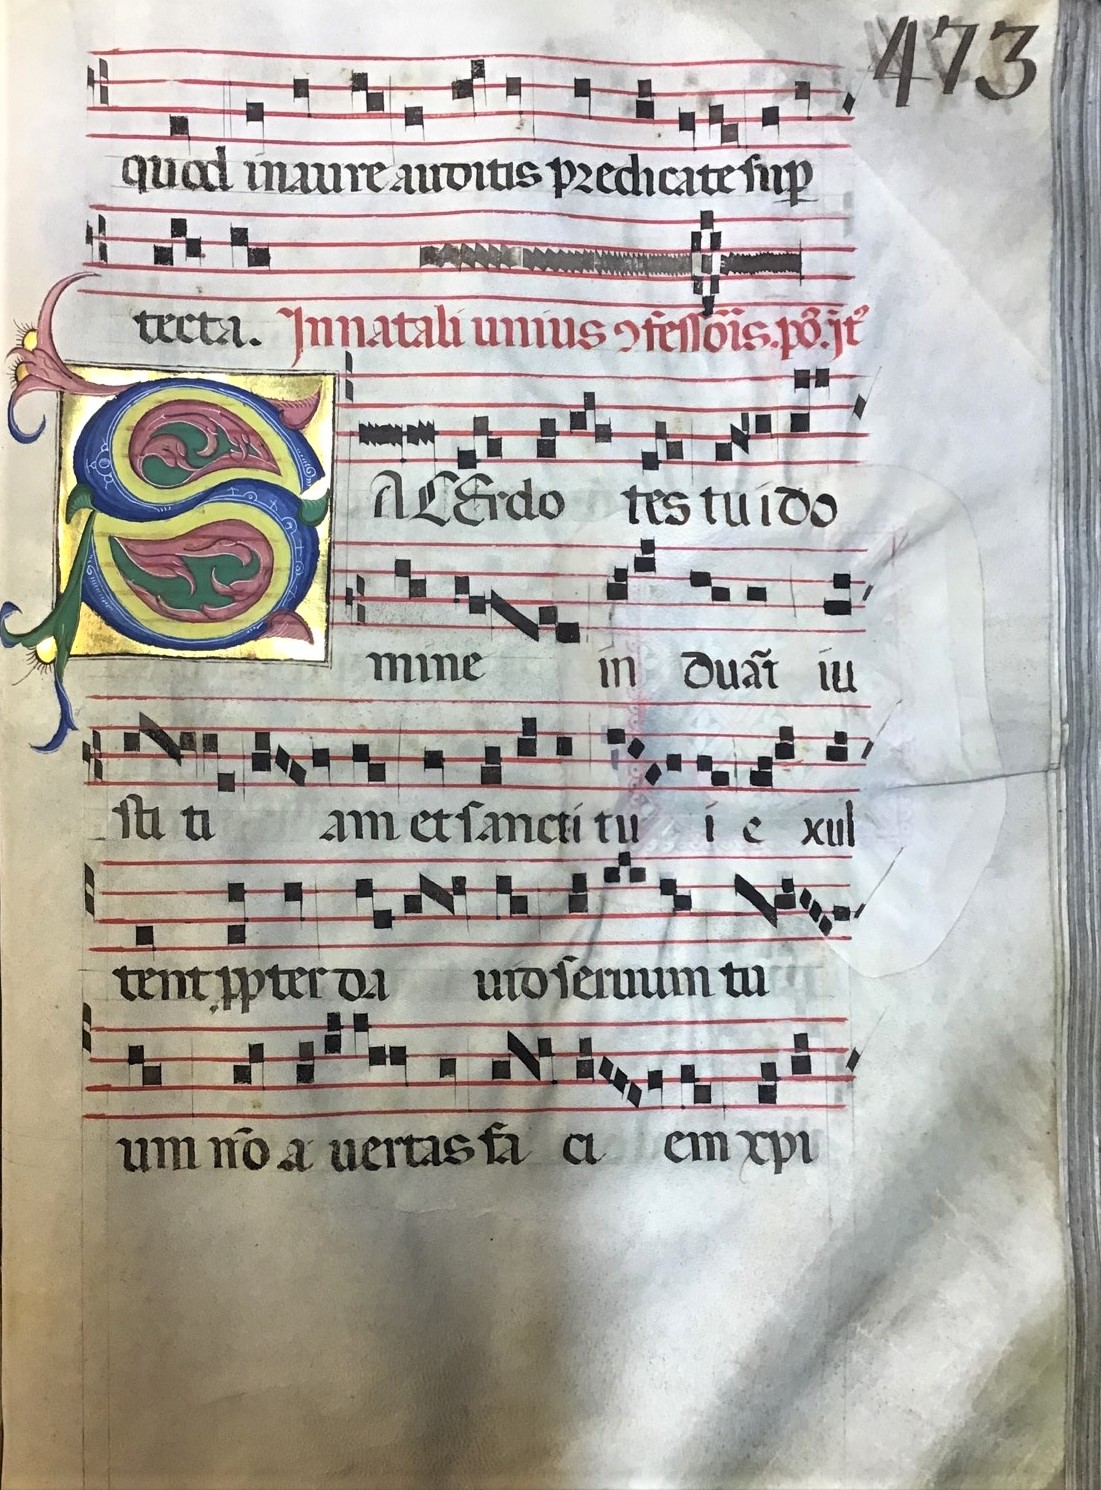 473
quod in aure auditis predicate sup
tecta. In natali unius ɔfessoris. pō. it̄
SACErdo tes tui do
mine in duāt iu
sti ti am et sancti tu i e xul
tent ppter da uid seruum tu
um nō a uertas fa ci em xpi